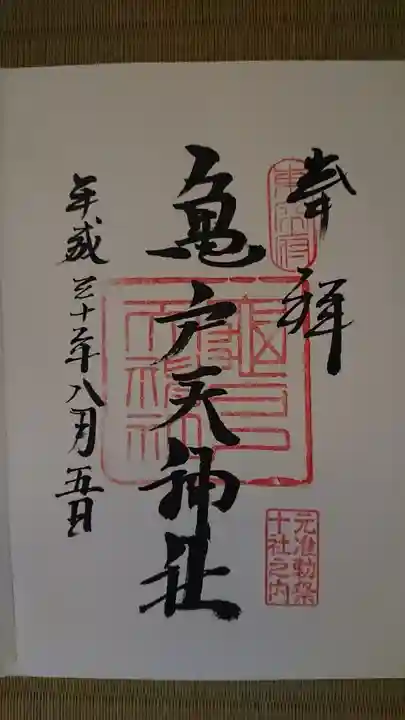 奉拝
東宰府
亀戸天神社
元准勅祭
十社之内
平成三十年八月五日